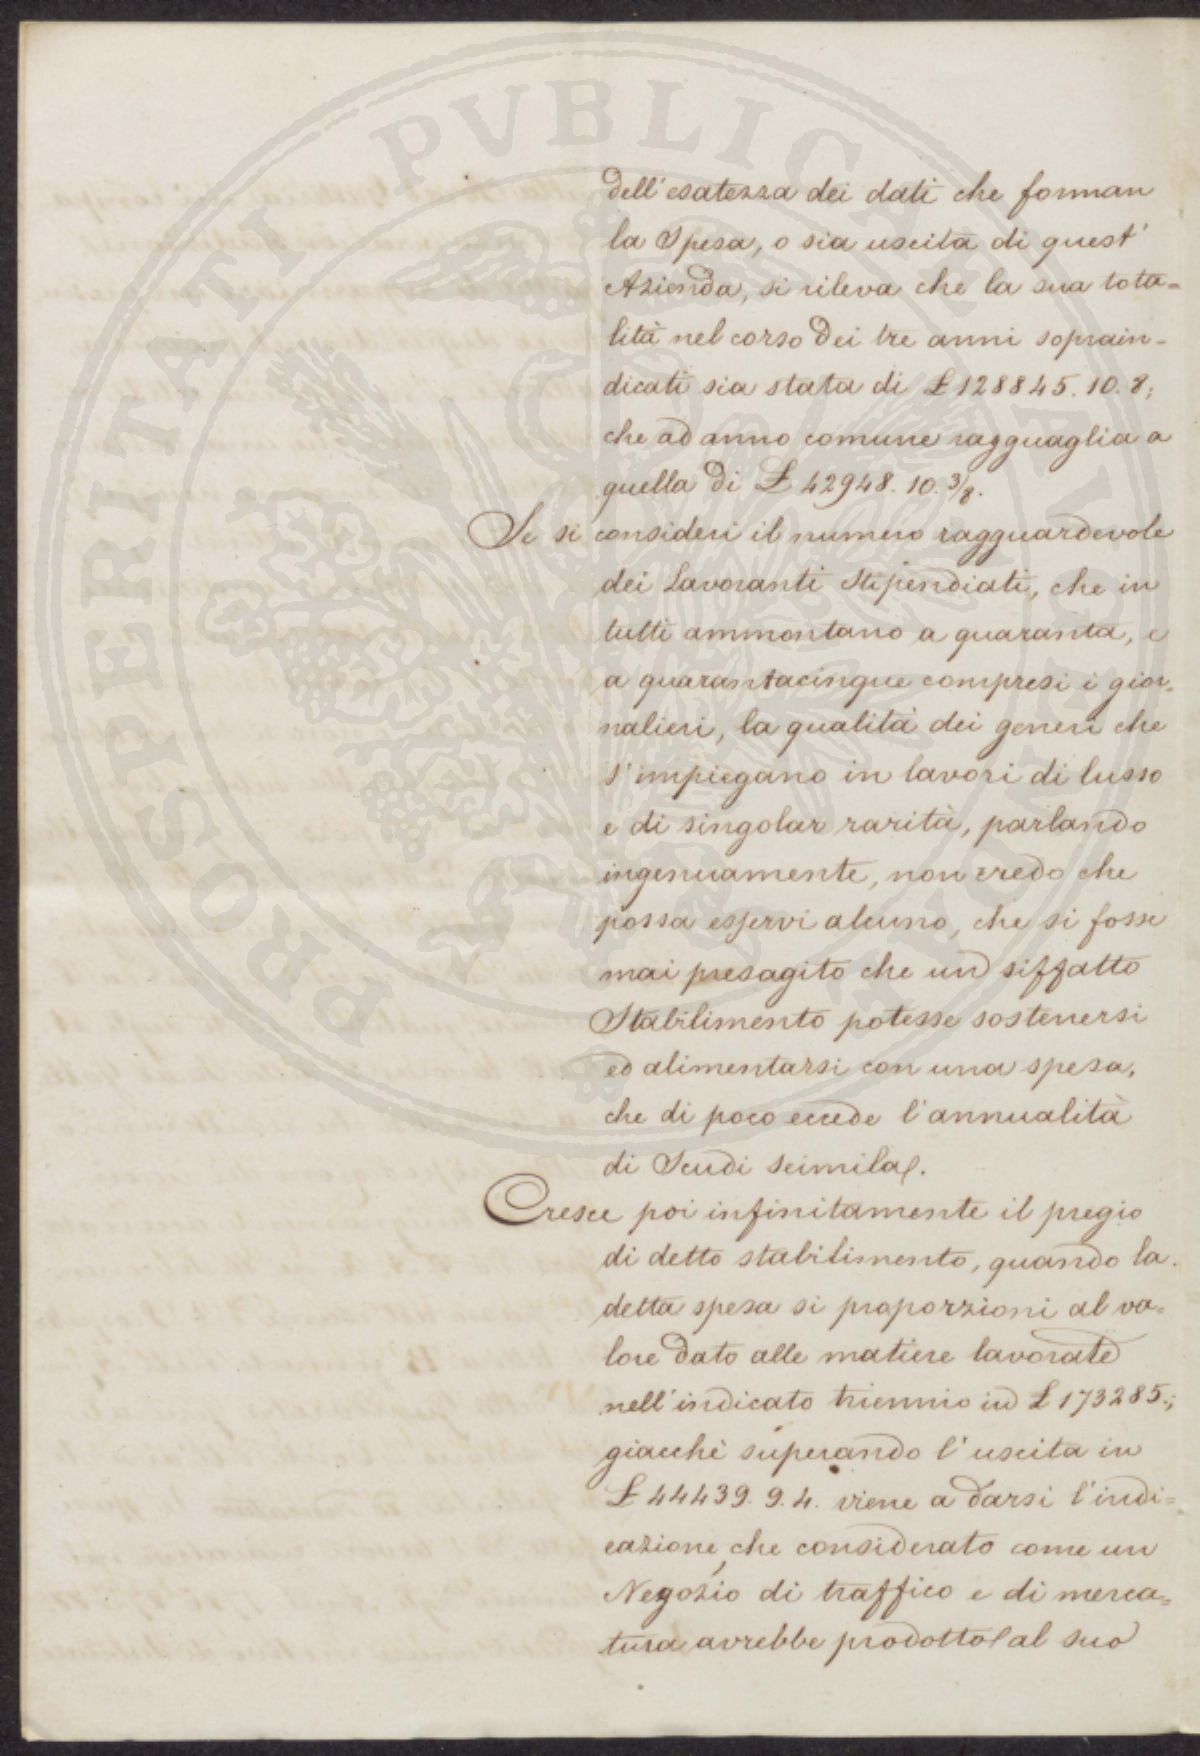 dell'esatezza dei dati che forman
la Spesa, o sia uscita di quest'
Azienda, si rileva che la sua tota=
lità nel corso dei tre anni soprain-
dicati sia stata di £ 128845. 10. 8;
che ad anno comune ragguaglia a
quella di £ 42948. 10. 3/8.
Se si consideri il numero ragguardevole
dei Lavoranti Stipendiati, che in
tutti ammontano a quaranta, e
a quarantacinque compresi i gior=
nalieri, la qualità dei generi che
s'impiegano in lavori di lusso
e di singolar rarità, parlando
ingenuamente, non credo che
possa esservi alcuno, che si fosse
mai presagito che un siffatto
Stabilimento potesse sostenersi
ed alimentarsi con una spesa,
che di poco eccede l'annualità
di Scudi seimila.
Cresce poi infinitamente il pregio
di detto stabilimento, quando la
detta spesa si proporzioni al va=
lore dato alle matiere lavorate
nell'indicato triennio in £ 173285.;
giacchè superando l'uscita in
£ 44439. 9. 4. viene a darsi l'indi=
cazione, che considerato come un
Negozio di traffico e di merca=
tura avrebbe prodotto al suo
PROSPERITATI PVBLICAE AVGENDAE